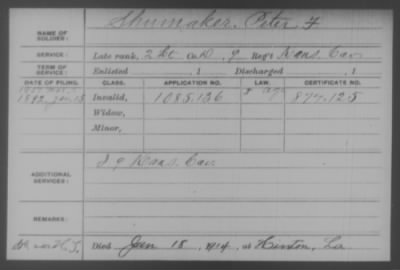 NAME OF SOLDIER: Shumaker, Peter F
SERVICE: Late rank, 2 Lt Co. D, 9 Reg't Kans. Cav
TERM OF SERVICE: Enlisted , 1 Discharged , 1
DATE OF FILING. CLASS. APPLICATION NO. LAW. CERTIFICATE NO.
1892 Jan 13 Invalid, 1085.136 877.125
Widow,
Minor,
ADDITIONAL SERVICES: J 9 Kans. Cav
REMARKS:
Died Jan 18, 1914, at Hinton, La